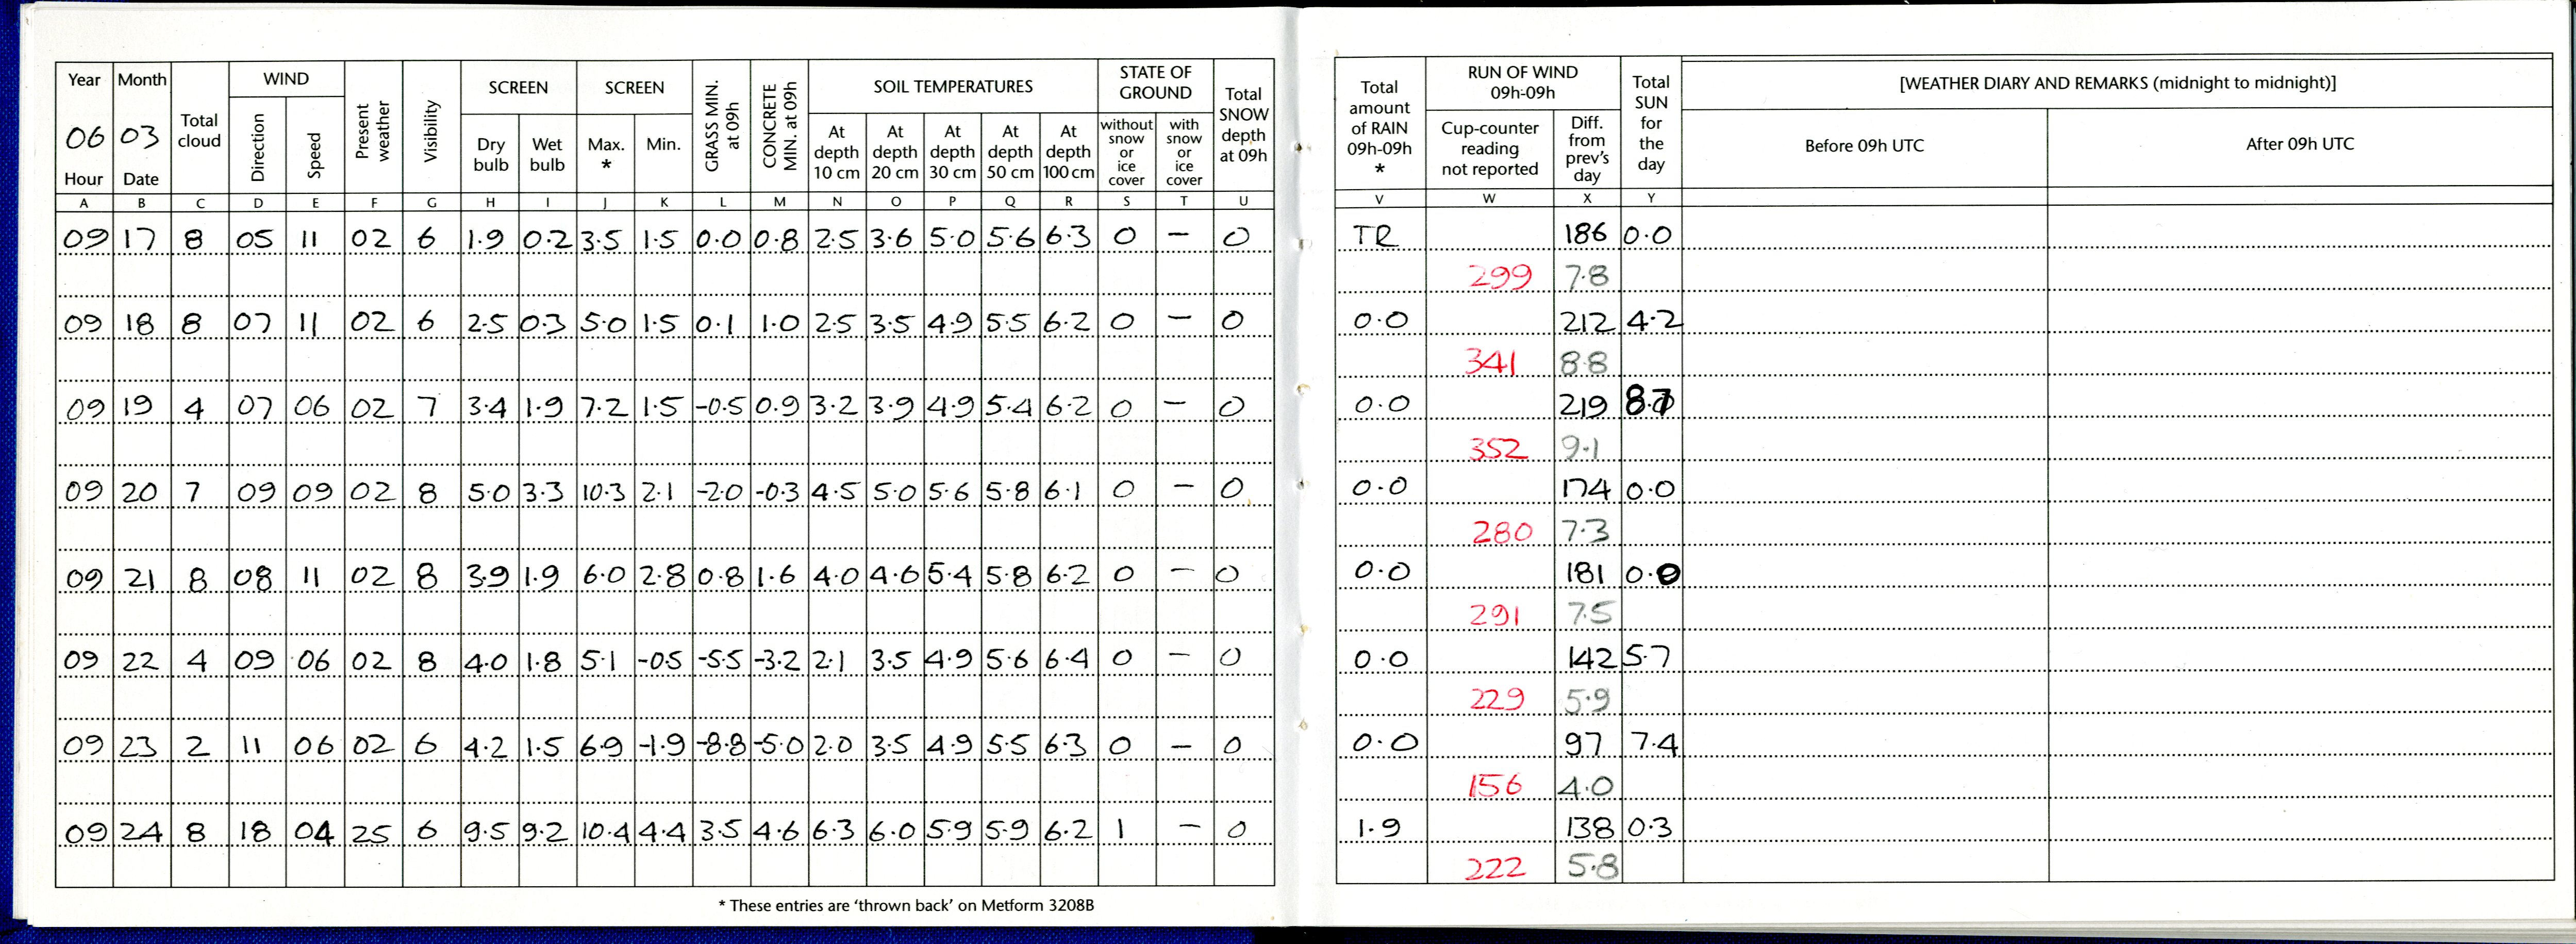 Year Month Total cloud WIND Present weather Visibility SCREEN SCREEN GRASS MIN. at 09h CONCRETE MIN. at 09h SOIL TEMPERATURES STATE OF GROUND Total SNOW depth at 09h
06 03 Direction Speed Dry bulb Wet bulb Max. * Min. At depth 10 cm At depth 20 cm At depth 30 cm At depth 50 cm At depth 100 cm without snow or ice cover with snow or ice cover
Hour Date
A B C D E F G H I J K L M N O P Q R S T U
09 17 8 05 11 02 6 1.9 0.2 3.5 1.5 0.0 0.8 2.5 3.6 5.0 5.6 6.3 0 — 0
09 18 8 07 11 02 6 2.5 0.3 5.0 1.5 0.1 1.0 2.5 3.5 4.9 5.5 6.2 0 — 0
09 19 4 07 06 02 7 3.4 1.9 7.2 1.5 -0.5 0.9 3.2 3.9 4.9 5.4 6.2 0 — 0
09 20 7 09 09 02 8 5.0 3.3 10.3 2.1 -2.0 -0.3 4.5 5.0 5.6 5.8 6.1 0 — 0
09 21 8 08 11 02 8 3.9 1.9 6.0 2.8 0.8 1.6 4.0 4.6 5.4 5.8 6.2 0 — 0
09 22 4 09 06 02 8 4.0 1.8 5.1 -0.5 -5.5 -3.2 2.1 3.5 4.9 5.6 6.4 0 — 0
09 23 2 11 06 02 6 4.2 1.5 6.9 -1.9 -8.8 -5.0 2.0 3.5 4.9 5.5 6.3 0 — 0
09 24 8 18 04 25 6 9.5 9.2 10.4 4.4 3.5 4.6 6.3 6.0 5.9 5.9 6.2 1 — 0
* These entries are ‘thrown back’ on Metform 3208B
Total amount of RAIN 09h-09h * RUN OF WIND 09h-09h Total SUN for the day [WEATHER DIARY AND REMARKS (midnight to midnight)]
Cup-counter reading not reported Diff. from prev's day Before 09h UTC After 09h UTC
V W X Y
TR 186 0.0
299 7.8
0.0 212 4.2
341 8.8
0.0 219
352 9.1
0.0 174 0.0
280 7.3
0.0 181 0.0
291 7.5
0.0 142 5.7
229 5.9
0.0 97 7.4
156 4.0
1.9 138 0.3
222 5.8